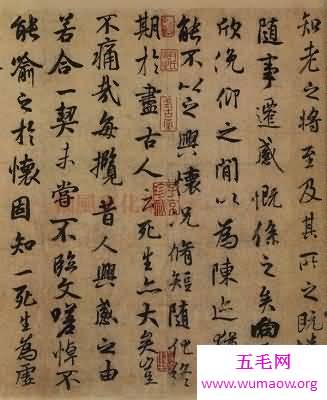 知老之将至及其所之既惓
隨事遷感慨係之矣向
欣俛仰之閒以為陳迹猶
能不以之興懷況脩短隨化終
期於盡古人云死生亦大矣豈
不痛哉每攬昔人興感之由
若合一契未嘗不臨文嗟悼不
能喻之於懷固知一死生為虛
五毛网
www.wumaow.org